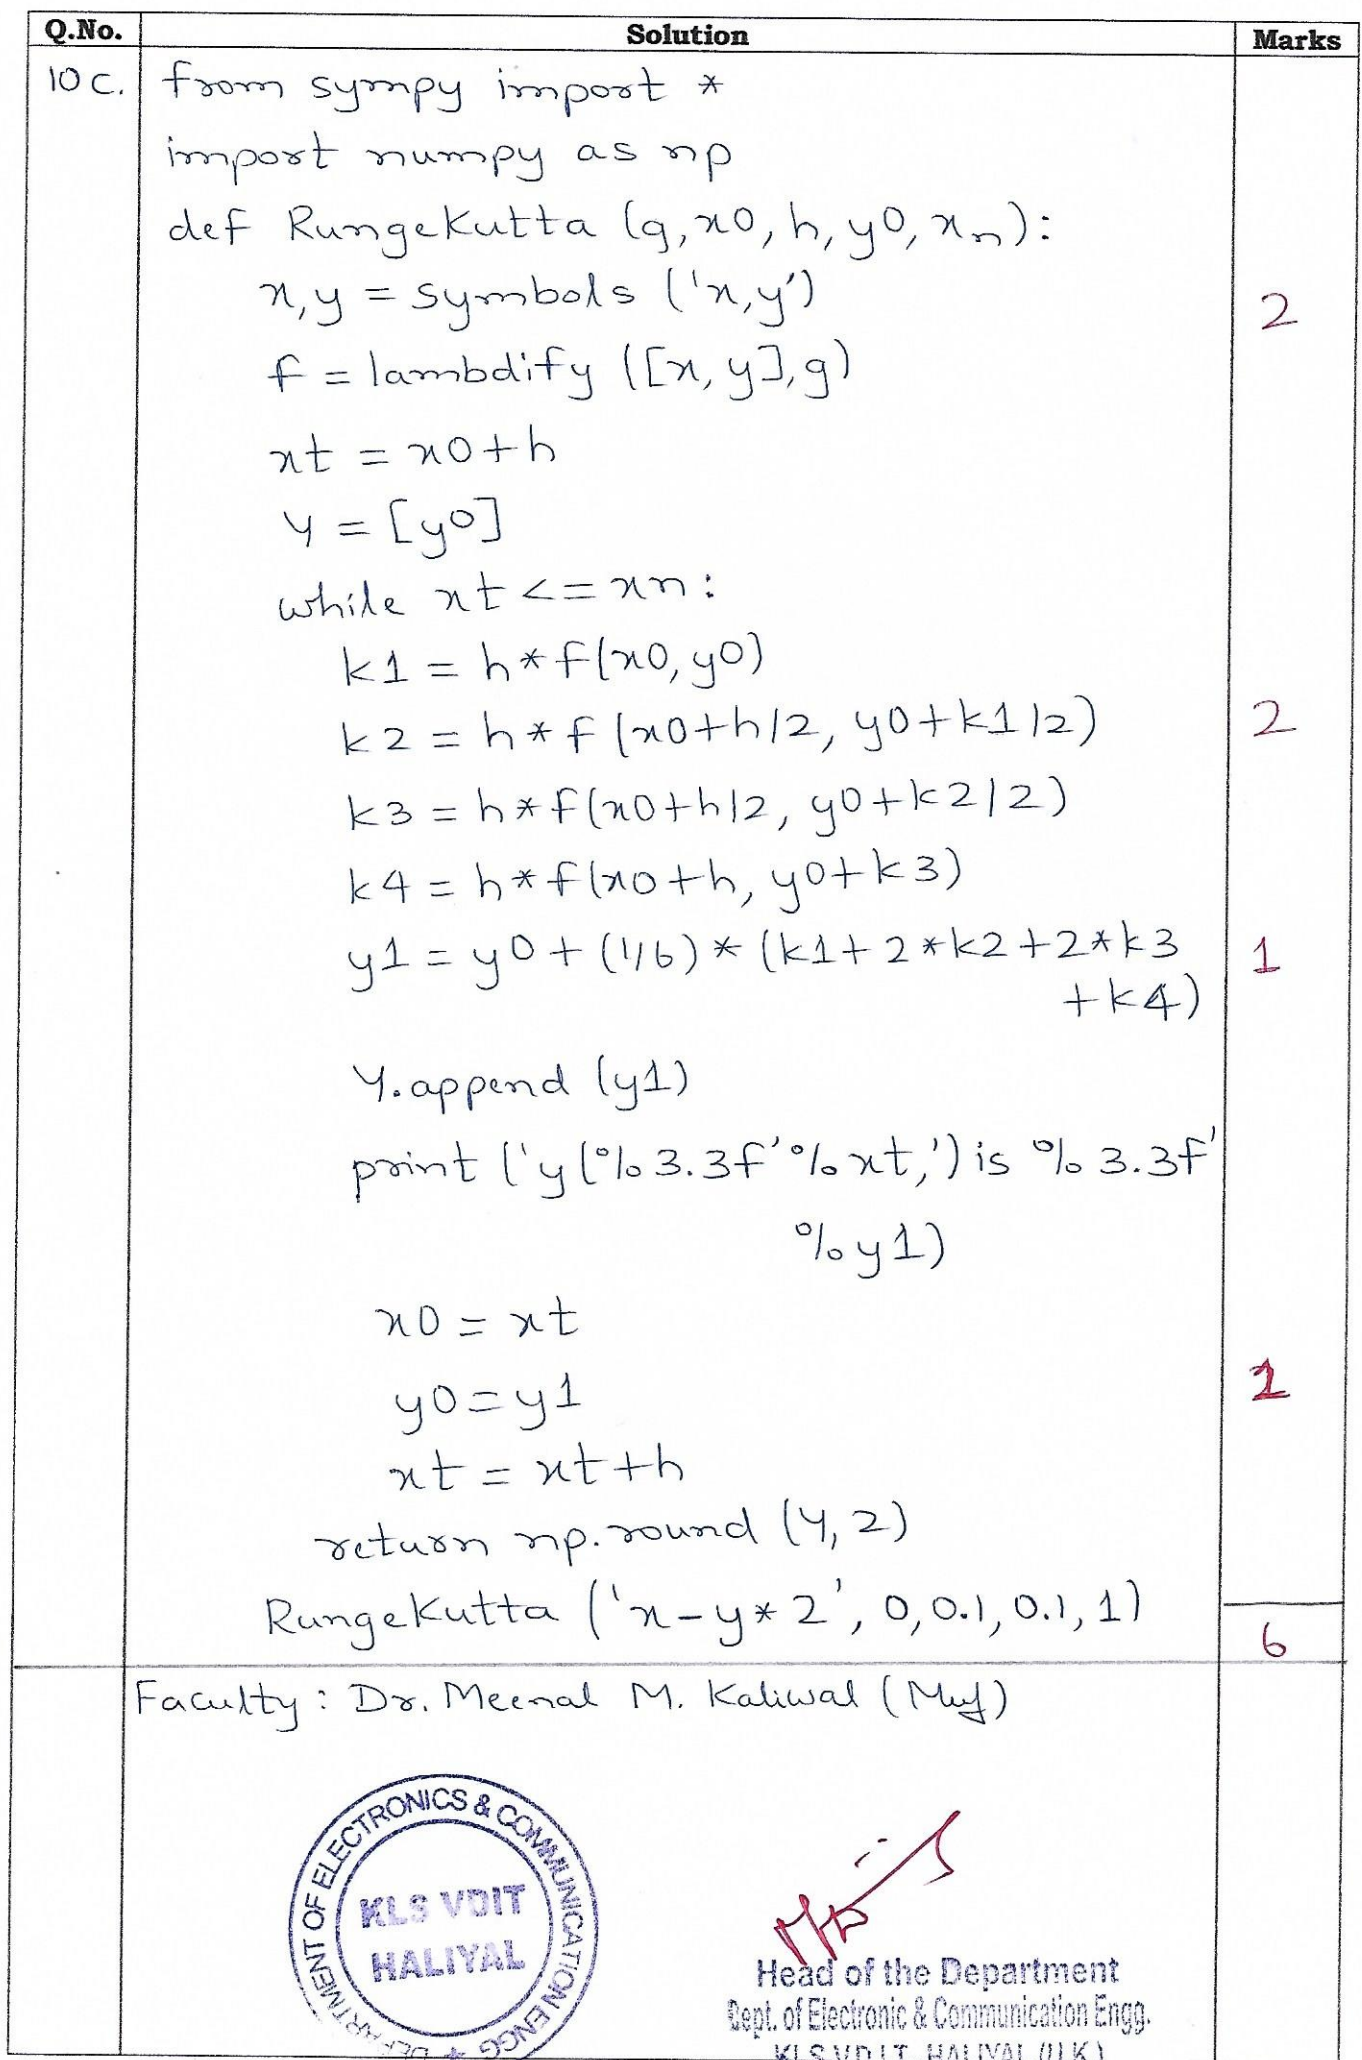 Q.No. Solution Marks
10 c. from sympy import *
import numpy as np
def RungeKutta (g, x0, h, y0, xn):
x, y = symbols ('x,y') 2
f = lambdify ([x, y], g)
xt = x0+h
Y = [y0]
while xt <= xn:
k1 = h*f(x0, y0)
k2 = h*f (x0+h/2, y0+k1/2) 2
k3 = h*f(x0+h/2, y0+k2/2)
k4 = h*f(x0+h, y0+k3)
y1 = y0 + (1/6) * (k1 + 2*k2 + 2*k3 1
+ k4)
Y.append (y1)
print ('y(%3.3f'%xt,') is %3.3f'
%y1)
x0 = xt
y0 = y1 1
xt = xt+h
return np.round (Y, 2)
RungeKutta ('x-y*2', 0, 0.1, 0.1, 1)
6
Faculty : Dr. Meenal M. Kaliwal
DEPARTMENT OF ELECTRONICS & COMMUNICATION ENGG
KLS VDIT
HALIYAL
Head of the Department
Dept. of Electronic & Communication Engg.
KLS V.D.I.T. HALIYAL (U.K.)